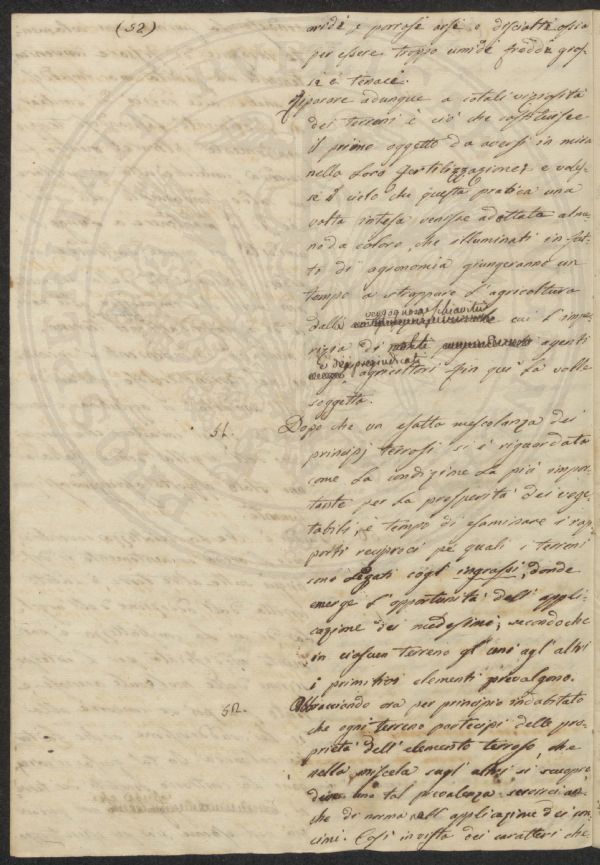 (52)
aride e porose arse e disciolte, ossia
per essere troppo umide fredde gros-
se e tenaci.
Riparare adunque a cotali viziosità
dei terreni è ciò che costituisce
il primo oggetto da aversi in mira
nella loro fertilizzazione, e voles-
se il cielo che questa pratica una
volta intesa venisse adottata alme-
no da coloro, che illuminati in fat-
to di agronomia giungeranno un
tempo a strappare l'agricoltura
dalla vergognosa schiavitù cui l'impe-
rizia di agenti
e dei pregiudicati agricoltori fin qui la volle
soggetta.
51. Dopo che un esatta mescolanza dei
principj terrosi si è riguardata
come la condizione la più impor-
tante per la prosperità dei vege-
tabili, è tempo di esaminare i rap-
porti reciproci pe' quali i terreni
sono legati cogl' ingrassi, donde
emerge l'opportunità dell' appli-
cazione dei medesimi, secondoche
in ciascun terreno gl' uni agl' altri
i primitivi elementi prevalgono.
52. Abbracciando ora per principio indubitato
che ogni terreno partecipi delle pro-
prietà dell' elemento terroso, che
nella miscela sugl' altri si scuopre
una tal prevalenza
di norma nell' applicazione dei con-
cimi. Così in vista dei caratteri che